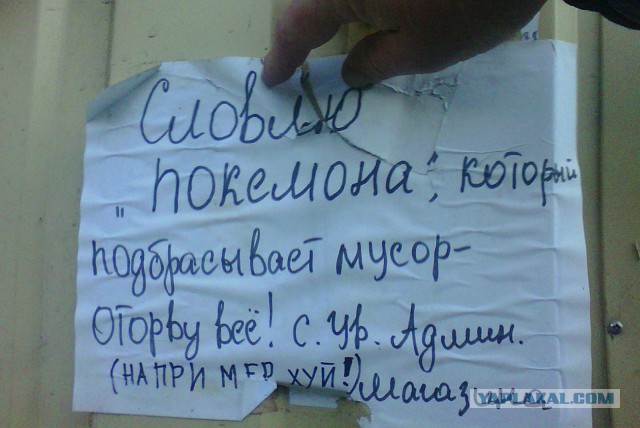 Словлю
„Покемона“, который
подбрасывает мусор-
Оторву всё! с. ур. Админ.
(НАПРИМЕР ХУЙ!) магазина
YAPLAKAL.COM